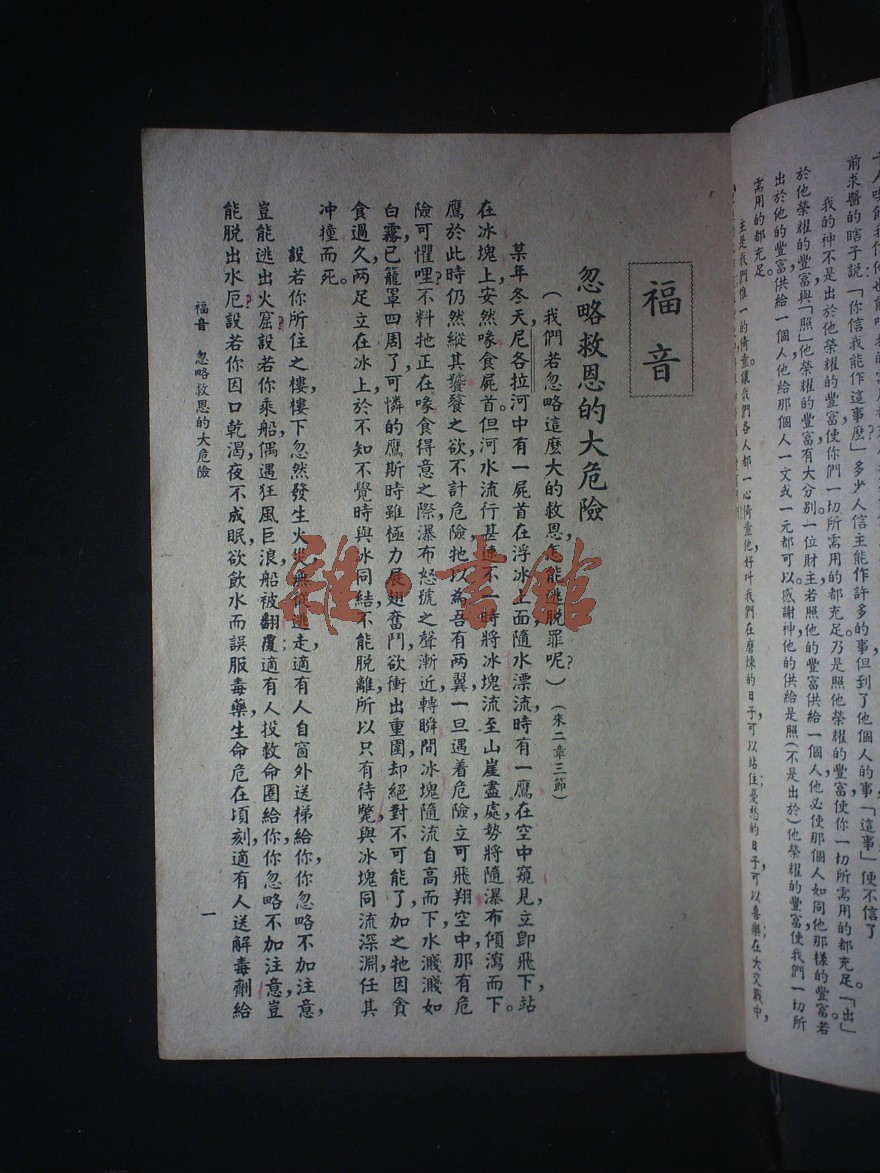 於他榮耀的豐富與「照」他榮耀的豐富有大分別一位財主若照他的豐富供給一個人他必使那個人如同他那樣的豐富若
出於他的豐富供給一個人他給那個人一文或一元都可以感謝神他的供給是照(不是出於)他榮耀的豐富使我們一切所
需用的都充足
主是我們惟一的倚靠讓我們各人都一心倚靠他好叫我們在磨煉的日子,可以站住;憂愁的日子,可以喜樂在大災難中,
前求醫的瞎子說「你信我能作這事麼?」多少人信主能作許多的事但到了他個人的事,「這事」便不信了
我的神不是出於他榮耀的豐富使你們一切所需用的都充足,乃是照他榮耀的豐富使你一切所需用的都充足。「出」
福音
忽略救恩的大危險
(我們若忽略這麼大的救恩,怎能逃脫罪呢?)(來二章三節)
某年冬天尼各拉河中有一屍首在浮冰上面隨水漂流,時有一鷹在空中窺見,立卽飛下,站
在冰塊上,安然喙食屍首。但河水流行甚速,不一時將冰塊流至山崖盡處,勢將隨瀑布傾瀉而下。
鷹於此時仍然縱其饕餮之欲,不計危險,牠以為吾有兩翼,一旦遇着危險,立可飛翔空中,那有危
險可懼哩?不料牠正在喙食得意之際,瀑布怒號之聲漸近,轉瞬間冰塊隨流自高而下,水濺濺如
白霧,已籠罩四周了,可憐的鷹,斯時雖極力展翅奮鬥,欲衝出重圍,却絕對不可能了,加之牠因貪
食過久,兩足立在冰上,於不知不覺時與冰同結,不能脫離,所以只有待斃,與冰塊同流深淵,任其
冲撞而死。
設若你所住之樓,樓下忽然發生火災,無從逃走,適有人自窗外送梯給你,你忽略不加注意,
豈能逃出火窟?設若你乘船,偶遇狂風巨浪,船被翻覆;適有人投救命圈給你,你忽略不加注意,豈
能脫出水厄?設若你因口乾渴,夜不成眠,欲飲水而誤服毒藥,生命危在頃刻,適有人送解毒劑給
福音 忽略救恩的大危險
一
書館